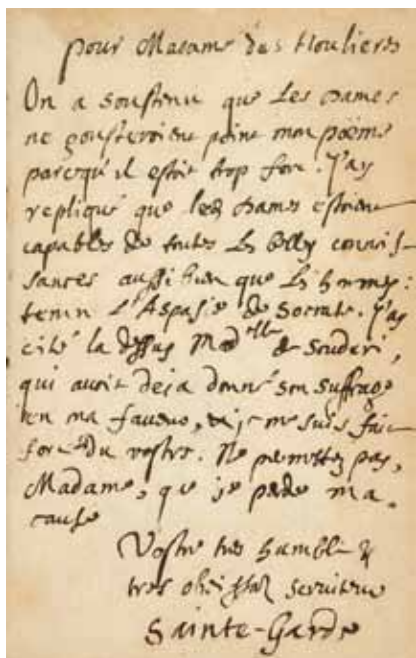 pour Madame des Houlieres
On a soustenu que les Dames
ne gousteroient point mon poëme
parcequ'il estoit trop fort. J'ay
repliqué que les Dames estoient
capables de toutes les belles connois-
sances aussi bien que les hommes:
temoin l'Aspasie de Socrate. J'ay
cité la dessus Mad.lle de Scuderi,
qui avoit deja donné son suffrage
en ma faveur, & je me suis fait
fort du vostre. Ne permettez pas,
Madame, que je perde ma
cause
Vostre tres humble &
tres obeissant serviteur
Sainte-Garde